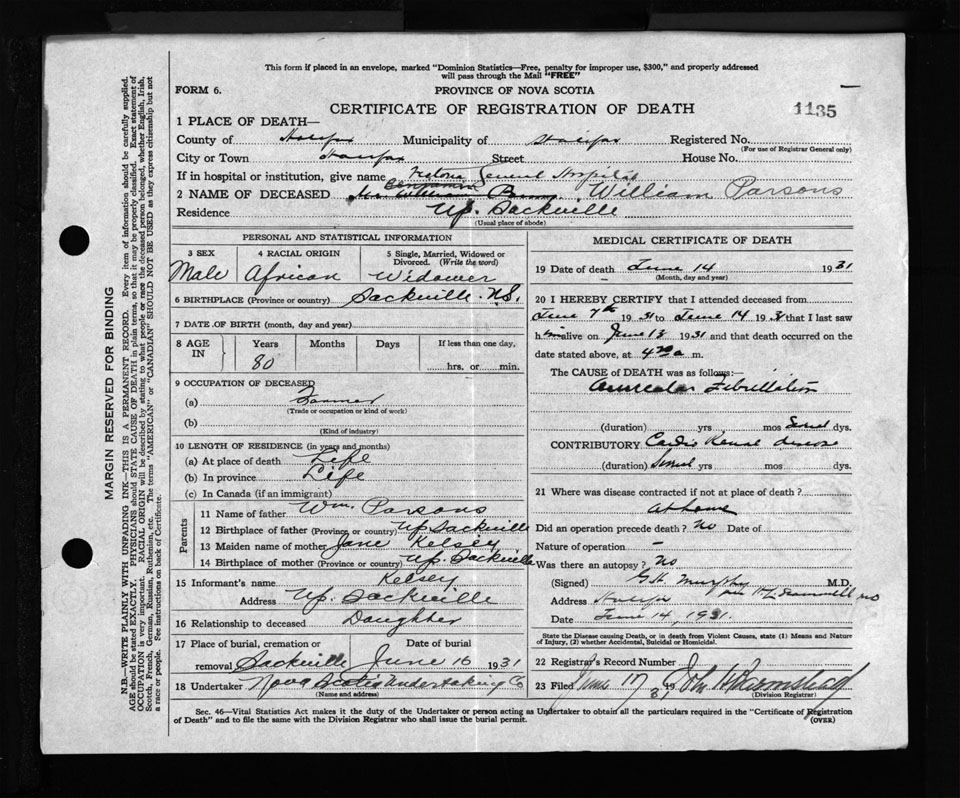 This form if placed in an envelope, marked "Dominion Statistics—Free, penalty for improper use, $300," and properly addressed
will pass through the Mail "FREE"
FORM 6.
PROVINCE OF NOVA SCOTIA
CERTIFICATE OF REGISTRATION OF DEATH
1135
1 PLACE OF DEATH—
County of Halifax Municipality of Halifax Registered No.
(For use of Registrar General only)
City or Town Halifax Street House No.
If in hospital or institution, give name Victoria General Hospital
Benjamin
2 NAME OF DECEASED William Parsons
Residence Up. Sackville
(Usual place of abode)
PERSONAL AND STATISTICAL INFORMATION
3 SEX 4 RACIAL ORIGIN 5 Single, Married, Widowed or
Divorced. (Write the word)
Male African Widower
6 BIRTHPLACE (Province or country) Sackville N.S.
7 DATE OF BIRTH (month, day and year)
8 AGE IN Years Months Days If less than one day,
80 hrs. or min.
9 OCCUPATION OF DECEASED
(a) Farmer
(Trade or occupation or kind of work)
(b)
(Kind of industry)
10 LENGTH OF RESIDENCE (in years and months)
(a) At place of death Life
(b) In province Life
(c) In Canada (if an immigrant)
Parents
11 Name of father Wm. Parsons
12 Birthplace of father (Province, or country) Up. Sackville
13 Maiden name of mother Jane Kelsey
14 Birthplace of mother (Province or country) Up. Sackville
15 Informant's name Kelsey
Address Up. Sackville
16 Relationship to deceased Daughter
17 Place of burial, cremation or Date of burial
removal Sackville June 16 1931
18 Undertaker Nova Scotia Undertaking Co
(Name and address)
MEDICAL CERTIFICATE OF DEATH
19 Date of death June 14 1931
(Month, day and year)
20 I HEREBY CERTIFY that I attended deceased from
June 7th 1931 to June 14 1931 that I last saw
him alive on June 13 1931 and that death occurred on the
date stated above, at 4 a m.
The CAUSE OF DEATH was as follows:—
Auricular Fibrillation
(duration) yrs mos dys.
CONTRIBUTORY Cardio Renal disease
(duration) yrs mos dys.
21 Where was disease contracted if not at place of death?
At home
Did an operation precede death? No Date of
Nature of operation –
Was there an autopsy? No
(Signed) G.H. Murphy M.D.
Address Halifax
Date June 14, 1931.
State the Disease causing Death, or in death from Violent Causes, state (1) Means and Nature
of Injury, (2) whether Accidental, Suicidal or Homicidal.
22 Registrar's Record Number
23 Filed June 17 193
(Division Registrar)
Sec. 46—Vital Statistics Act makes it the duty of the Undertaker or person acting as Undertaker to obtain all the particulars required in the "Certificate of Registration
of Death" and to file the same with the Division Registrar who shall issue the burial permit.
(OVER)
MARGIN RESERVED FOR BINDING
N.B.—WRITE PLAINLY WITH UNFADING INK—THIS IS A PERMANENT RECORD. Every item of information should be carefully supplied.
AGE should be stated EXACTLY. PHYSICIANS should STATE CAUSE OF DEATH in plain terms, so that it may be properly classified. Exact statement of
OCCUPATION is very important. RACIAL ORIGIN will be described by stating to what people or race the deceased person belonged, whether English, Irish,
Scotch, French, German, Russian, Ruthenian, etc. The terms "AMERICAN" or "CANADIAN" SHOULD NOT BE USED as they express citizenship but not
a race or people. See instructions on back of Certificate.